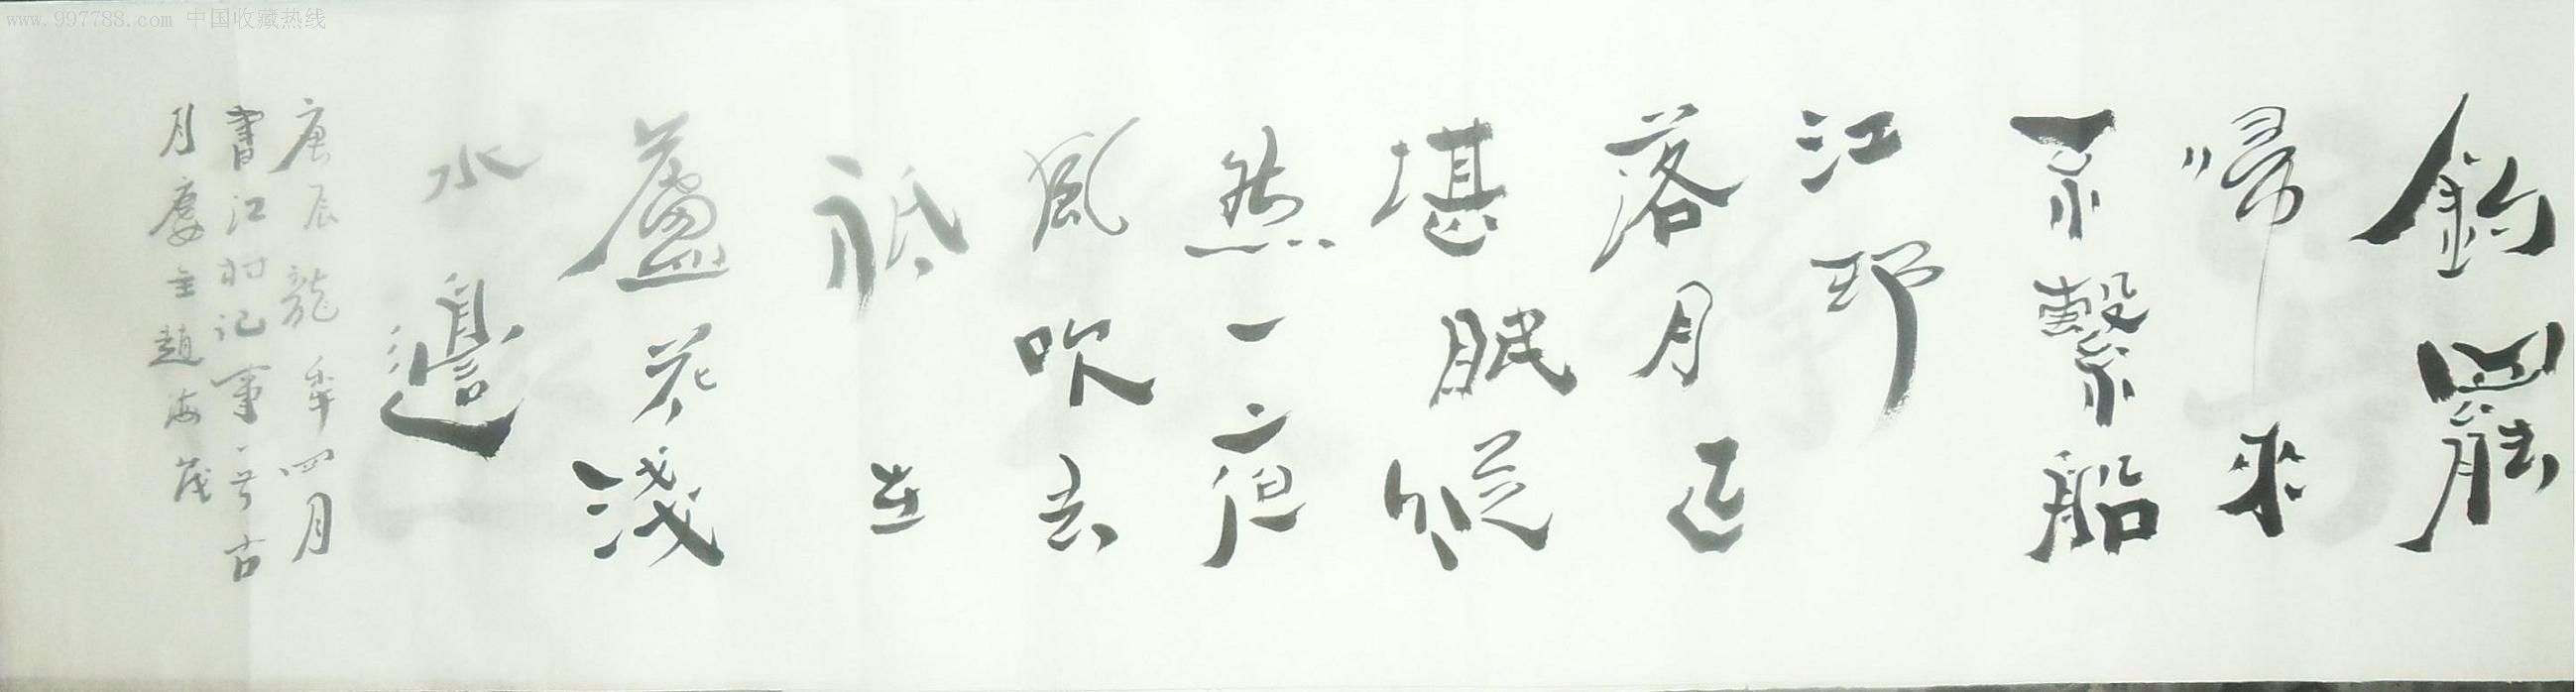 www.997788.com 中国收藏热线
釣罷
歸來
不繫船
江邨
落月正
堪眠縱
然一夜
風吹去
祇在
蘆花淺
水邊
庚辰龍年四月
書江村记事一首古
月廔主趙海茂